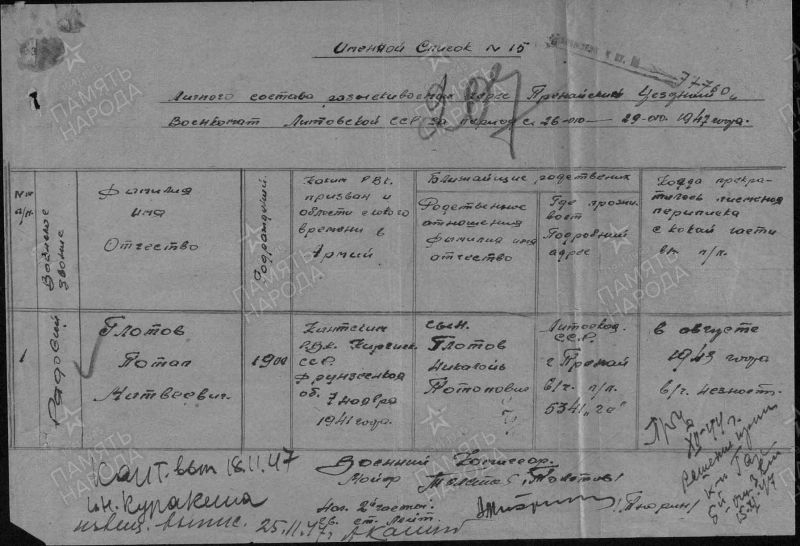 Именной Список N 15
Личного состава разыскиваемые через Пренайский Уездный
Военкомат Литовской ССР за период с 26-го — 29-го 1947 года.
NN п/п.
Воинское звание
Фамилия имя Отчество
Год рождения
Каким РВК. призван и области с какого времени в Армии
Ближайшие родственик
Родственные отношения фамилия имя отчество
Где прожи-вает Подробний адрес
Когда прекра-тилось писменая переписка с какой части вч. п/п.
1
Рядовой
Глотов Потап Матвеевич.
1900
Кантским РВК. Киргиск. ССР. Фрунзенкой об. 7 ноября 1941 года.
сын. Глотов Николай Потопович
Литовская С.С.Р. г Пренай в/ч. п/п. 5341 "га"
в августе 1943 года в/ч. неизвест.
Военний Комиссар.
Майор
Нач. 2й части
ст. лейт.
Карт. вып 18.11.47
ин. Куракина
извещ. выпис. 25.11.47г.
ПАМЯТЬ НАРОДА